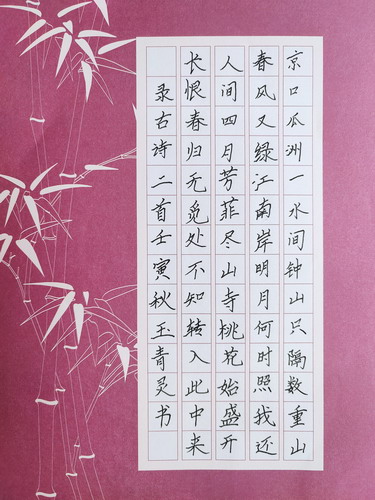 京口瓜洲一水间钟山只隔数重山
春风又绿江南岸明月何时照我还
人间四月芳菲尽山寺桃花始盛开
长恨春归无觅处不知转入此中来
录古诗二首壬寅秋玉青灵书